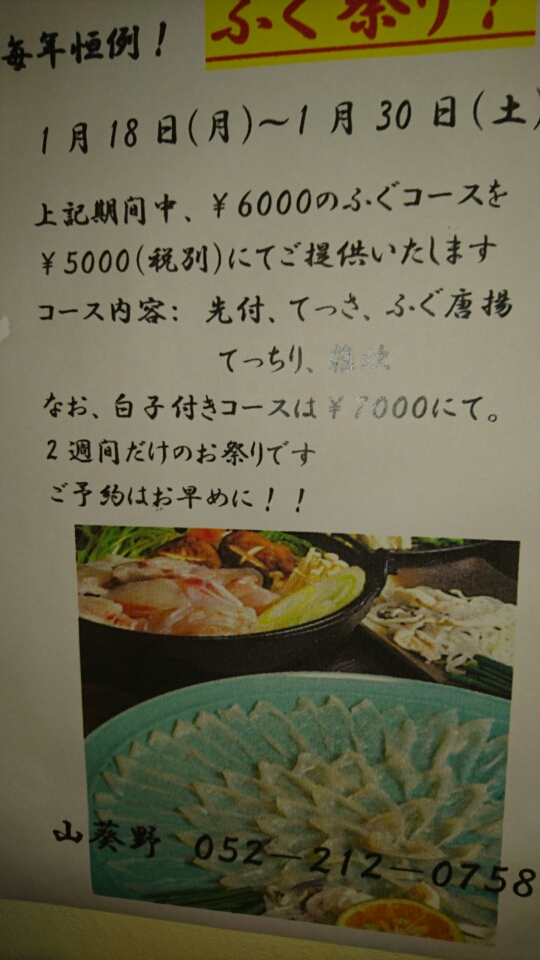 ふぐ祭り！
毎年恒例！
1月18日(月)～1月30日(土)
上記期間中、￥6000のふぐコースを
￥5000(税別)にてご提供いたします
コース内容： 先付、てっさ、ふぐ唐揚
てっちり、雑炊
なお、白子付きコースは￥7000にて。
2週間だけのお祭りです
ご予約はお早めに！！
山葵野 052―212―0758